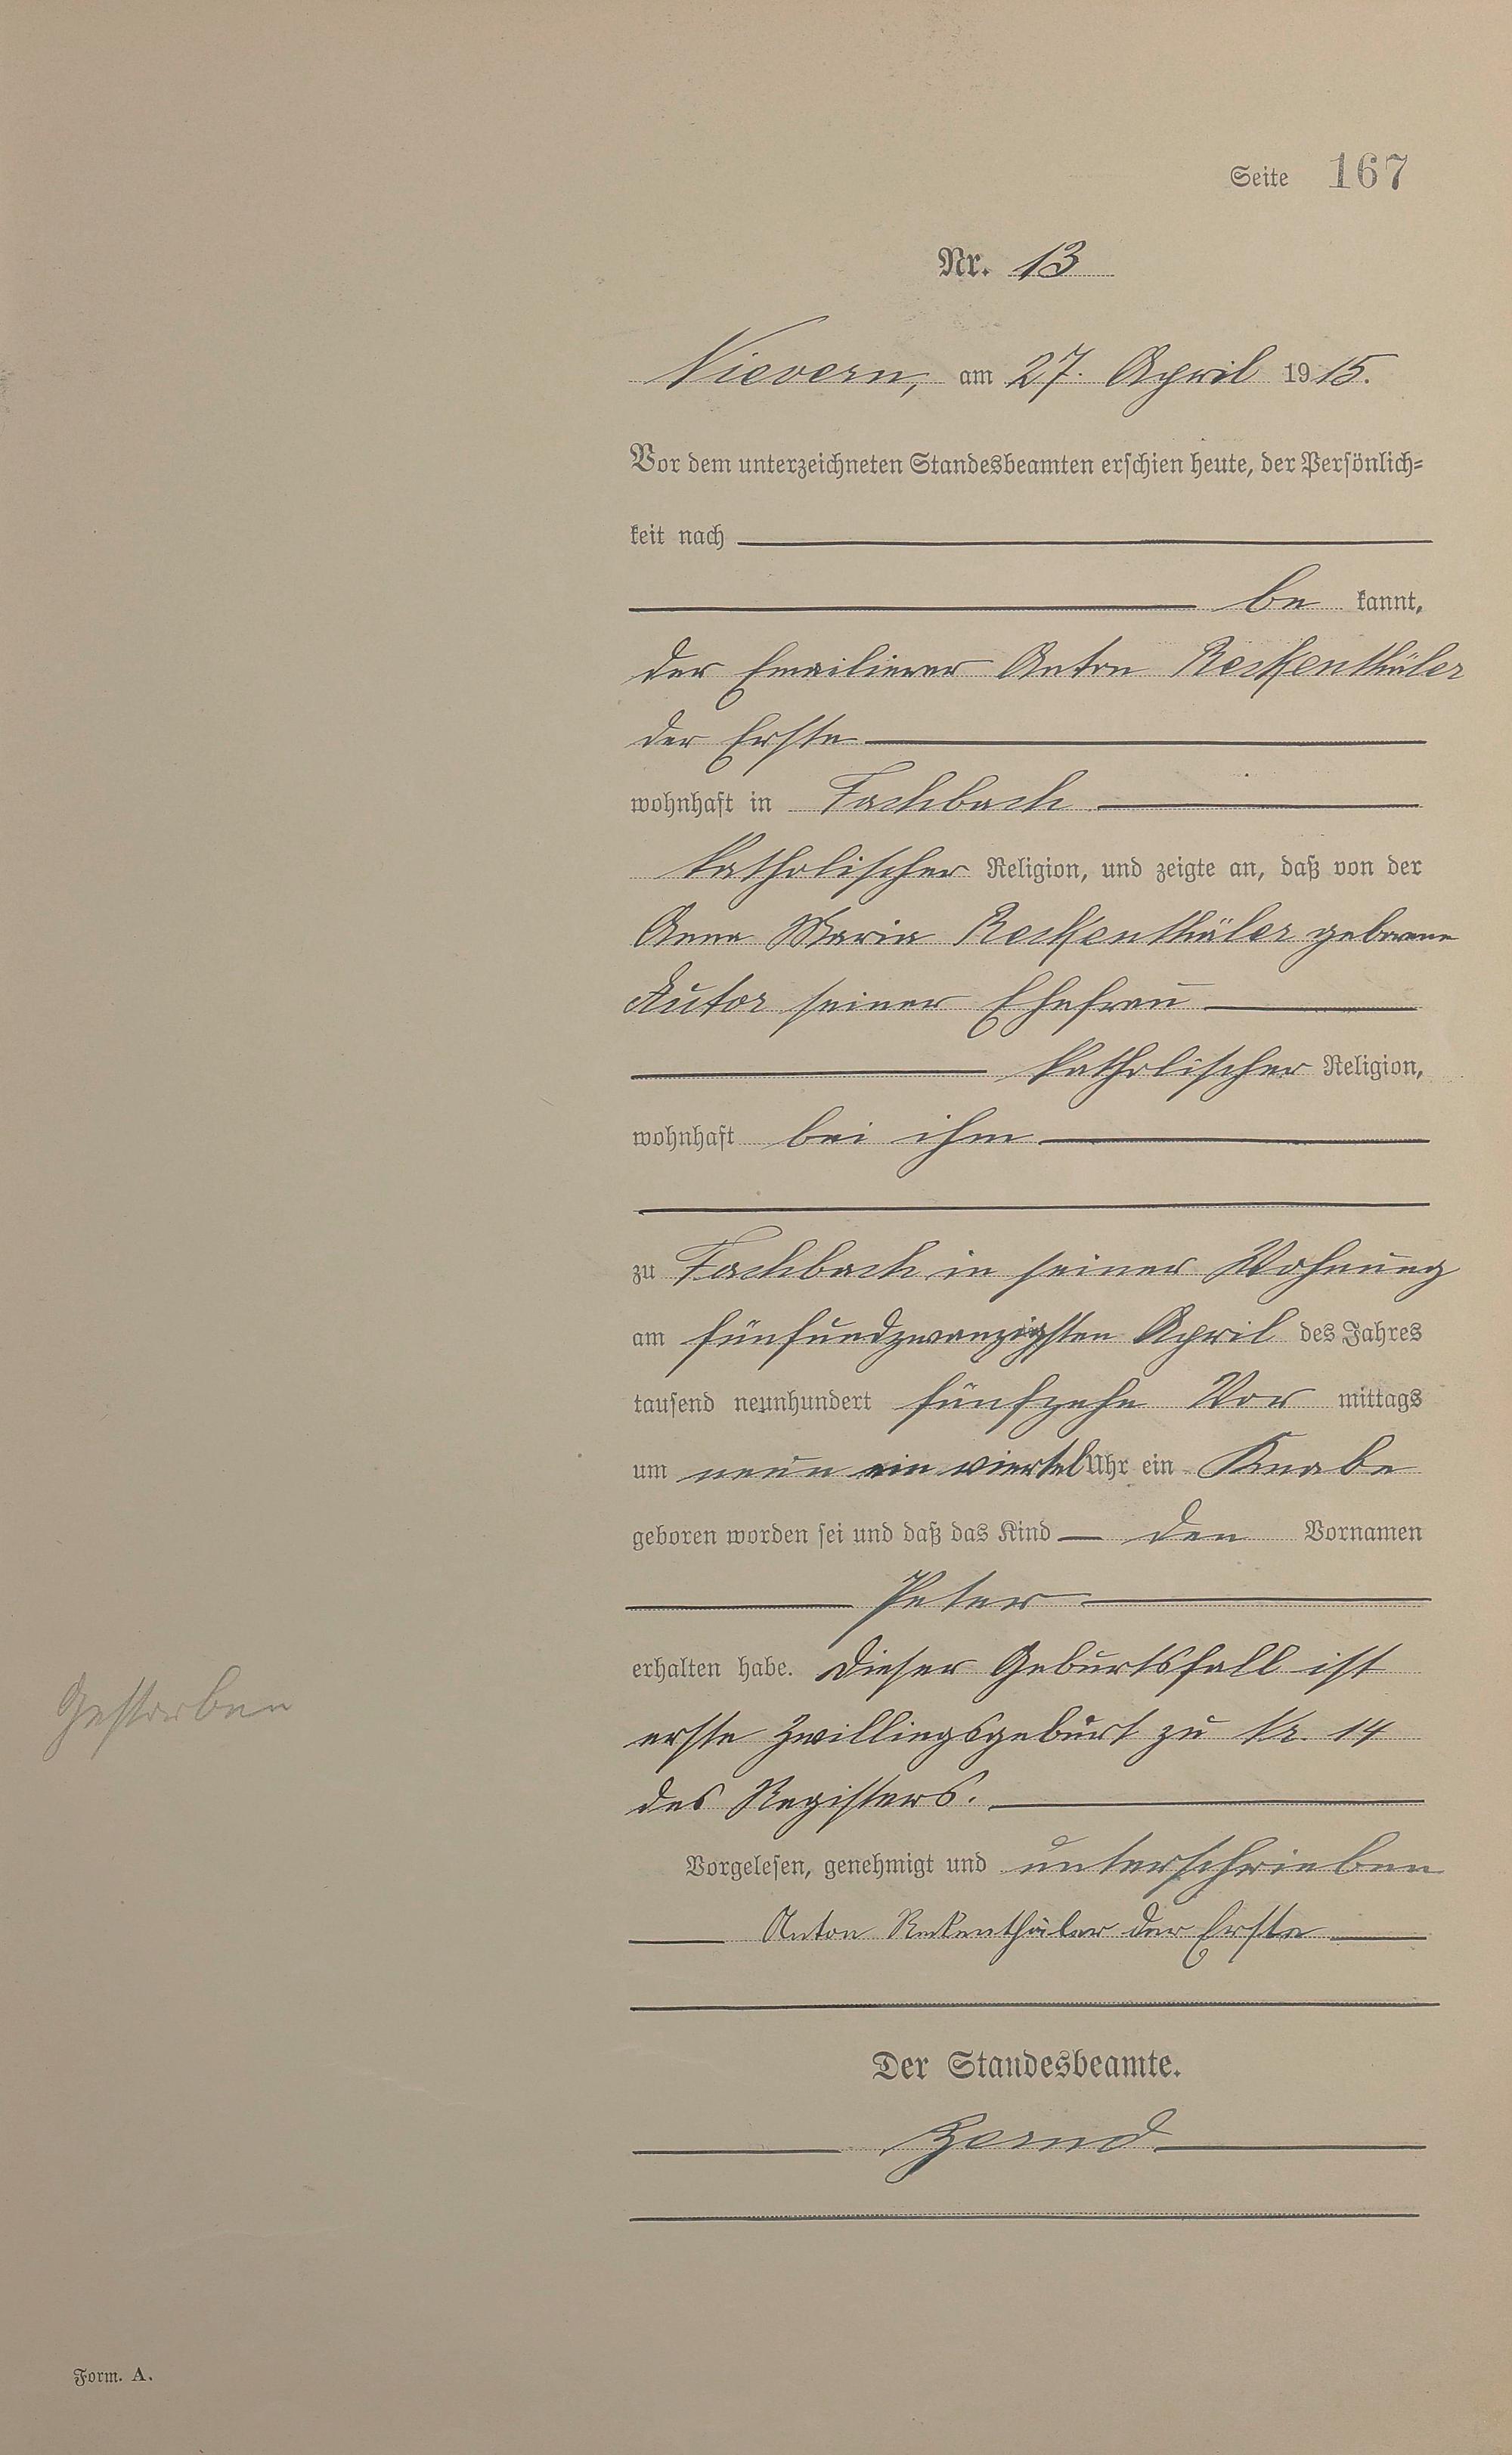 Seite 167
Nr. 13
Nievern, am 27. April 1915.
Vor dem unterzeichneten Standesbeamten erschien heute, der Persönlich-
keit nach
be kannt,
der Emailierer Anton Reckenthäler
der Erste
wohnhaft in Fachbach
katholischer Religion, und zeigte an, daß von der
Anna Maria Reckenthäler geborene
Autor seiner Ehefrau
katholischer Religion,
wohnhaft bei ihm
zu Fachbach in seiner Wohnung
am fünfundzwanzigsten April des Jahres
tausend neunhundert fünfzehn Vor mittags
um neun ein viertel Uhr ein Knabe
geboren worden sei und daß das Kind den Vornamen
Peter
erhalten habe. Dieser Geburtsfall ist
Gestorben
erste Zwillingsgeburt zu Nr. 14
des Registers.
Vorgelesen, genehmigt und unterschrieben
Anton Reckenthäler der Erste
Der Standesbeamte.
Form. A.